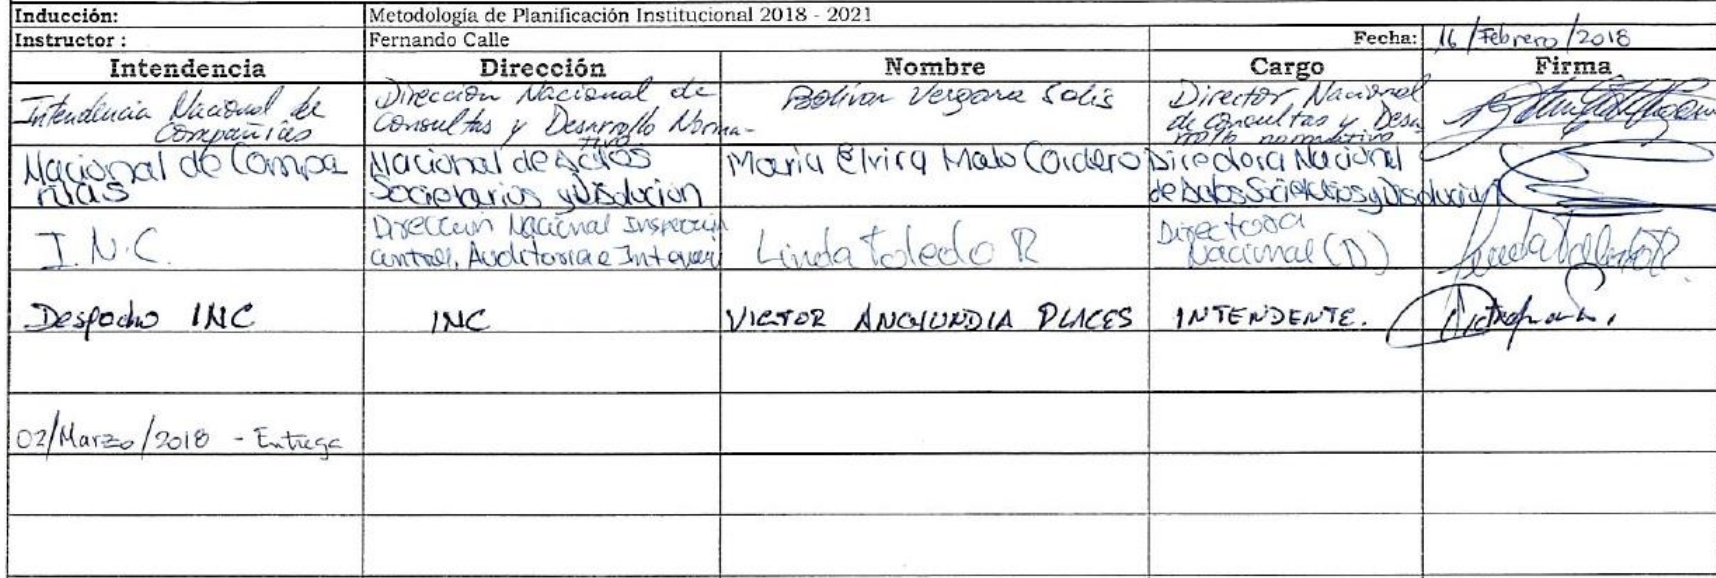 Inducción: Metodología de Planificación Institucional 2018 - 2021
Instructor : Fernando Calle Fecha: 16/Febrero/2018
Intendencia Dirección Nombre Cargo Firma
Intendencia Nacional de
Compañías
Dirección Nacional de
Consultas y Desarrollo Norma-
tivo
Bolívar Vergara Solis
Director Nacional
de consultas y Desa
rrollo normativo
Nacional de Compa
nias
Nacional de Actos
Societarios y Disolución
Maria Elvira Malo Cordero
Directora Nacional
de Societarios y Disolución
I.N.C.
Dirección Nacional Inspección
Control, Auditoria e
Linda Toledo R
Directora
Nacional (D)
Linda Toledo R.
Despacho INC
INC
VICTOR ANCHUNDIA PLACES
INTENDENTE.
02/Marzo/2018 - Entrega